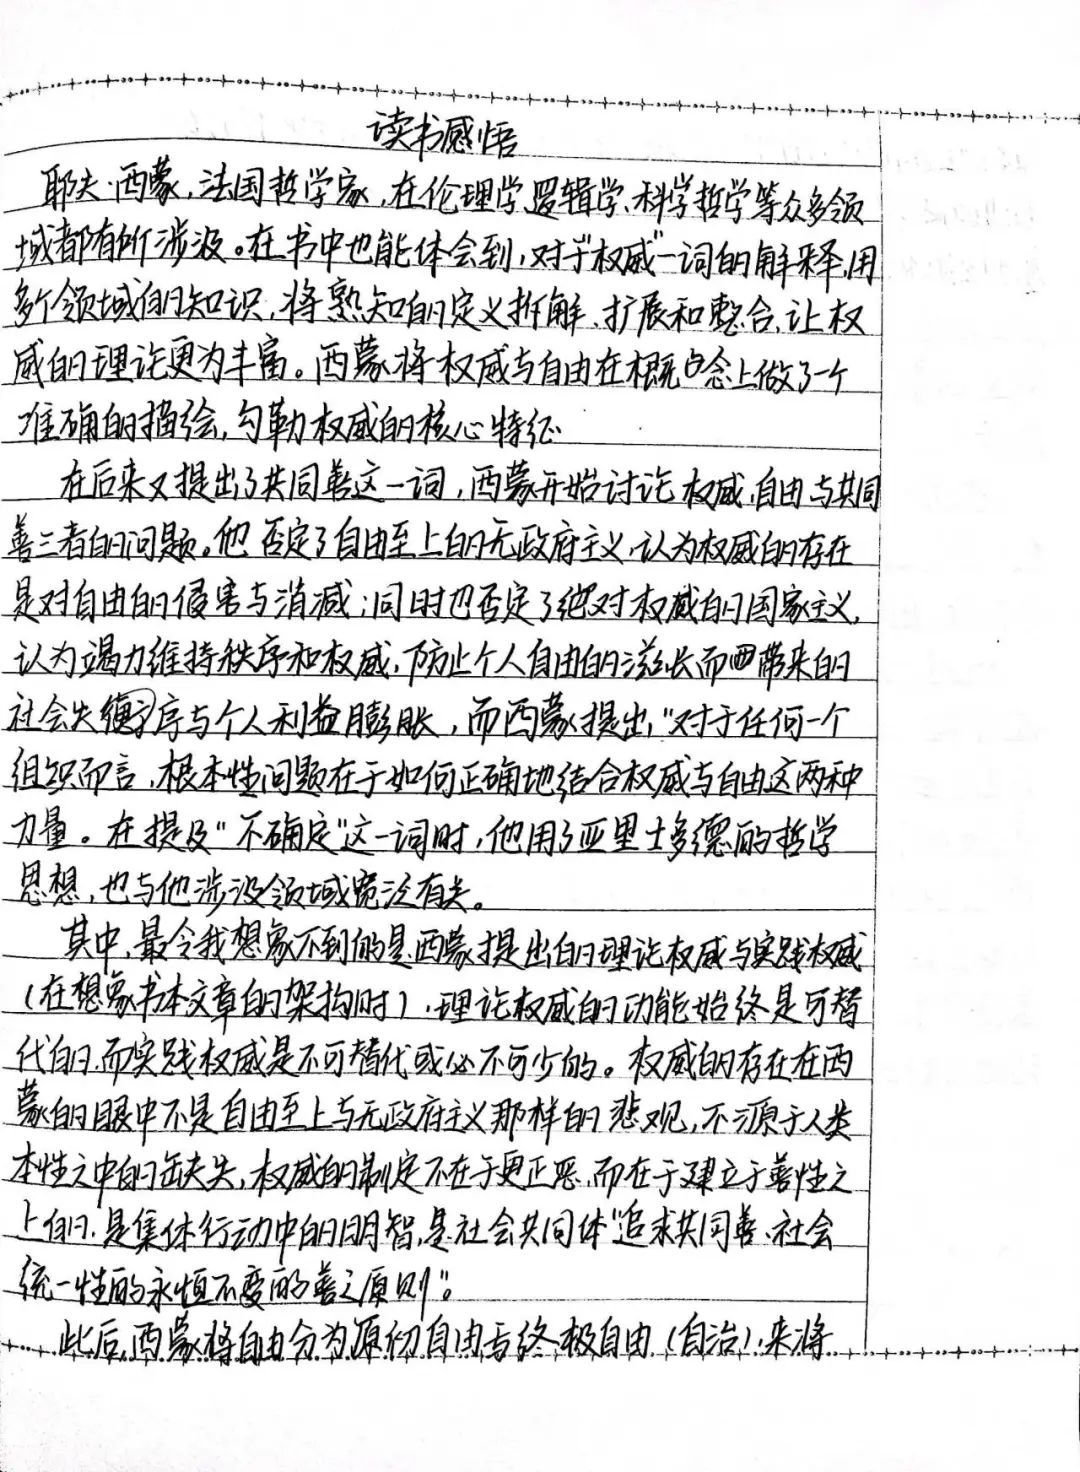 读书感悟
耶夫·西蒙,法国哲学家,在伦理学、逻辑学、科学哲学等众多领
域都有所涉及。在书中也能体会到,对于“权威”一词的解释,用
多个领域的知识,将熟知的定义拆解、扩展和整合,让权
威的理论更为丰富。西蒙将权威与自由在概念上做了一个
准确的描绘,勾勒权威的核心特征
在后来又提出了共同善这一词,西蒙开始讨论权威,自由与共同
善三者的问题。他否定了自由至上的无政府主义,认为权威的存在
是对自由的侵害与消减;同时也否定了绝对权威的国家主义,
认为竭力维持秩序和权威,防止个人自由的滋长而带来的
社会失序与个人利益膨胀,而西蒙提出,“对于任何一个
组织而言,根本性问题在于如何正确地结合权威与自由这两种
力量。在提及“不确定”这一词时,他用了亚里士多德的哲学
思想,也与他涉及领域宽泛有关。
其中,最令我想象不到的是西蒙提出的理论权威与实践权威
(在想象书本文章的架构时),理论权威的功能始终是可替
代的,而实践权威是不可替代或必不可少的。权威的存在在西
蒙的眼中不是自由至上与无政府主义那样的悲观,不源于人类
本性之中的缺失,权威的制定不在于更正恶,而在于建立于善性之
上的,是集体行动中的明智,是社会共同体“追求共同善、社会
统一性的永恒不变的善之原则”。
此后,西蒙将自由分为原初自由与终极自由(自治),来将